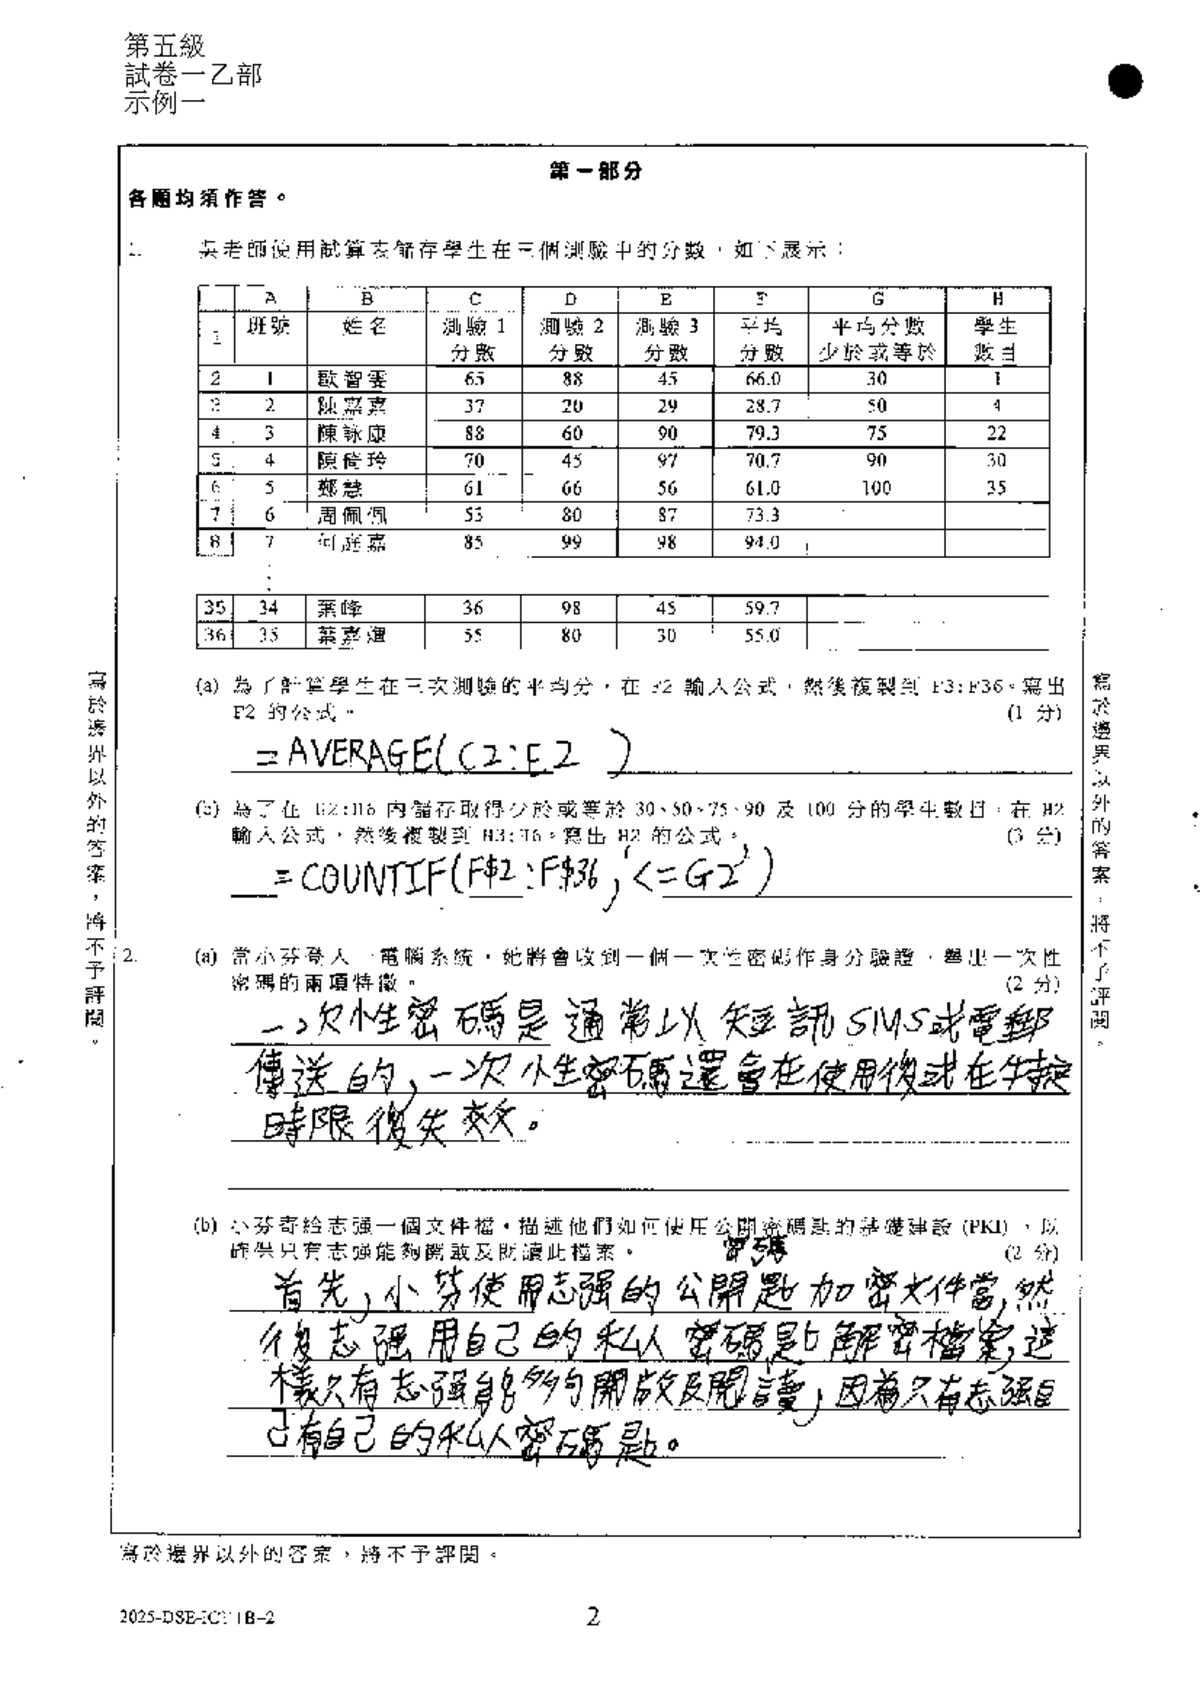 第五級
試卷一乙部
示例一
第一部分
各題均須作答。
1. 吳老師使用試算表儲存學生在三個測驗中的分數，如下展示：
A B C D E F G H
1 班號 姓名 測驗 1 分數 測驗 2 分數 測驗 3 分數 平均分數 平均分數少於或等於 學生數目
2 1 歐智雯 65 88 45 66.0 30 1
3 2 陳嘉嘉 37 20 29 28.7 50 4
4 3 陳詠康 88 60 90 79.3 75 22
5 4 陳倚玲 70 45 97 70.7 90 30
6 5 鄭慧 61 66 56 61.0 100 35
7 6 周佩佩 53 80 87 73.3
8 7 何庭嘉 85 99 98 94.0
35 34 葉峰 36 98 45 59.7
36 35 葉嘉 55 80 30 55.0
(a) 為了計算學生在三次測驗的平均分，在 F2 輸入公式，然後複製到 F3:F36。寫出
F2 的公式。 (1 分)
=AVERAGE(C2:E2 )
(b) 為了在 H2:H6 內儲存取得少於或等於 30、50、75、90 及 100 分的學生數目，在 H2
輸入公式，然後複製到 H3:H6。寫出 H2 的公式。 (3 分)
=COUNTIF(F$2:F$36,'<=G2')
2. (a) 當小芬登入一電腦系統，她將會收到一個一次性密碼作身分驗證，舉出一次性
密碼的兩項特徵。 (2 分)
一次性密碼是通常以短訊SMS或電郵
傳送的，一次性密碼還會在使用後或在特定
時限後失效。
(b) 小芬寄給志強一個文件檔。描述他們如何使用公開密碼匙的基礎建設 (PKI)，以
確保只有志強能夠開啟及閱讀此檔案。 (2 分)
密碼
首先，小芬使用志强的公開匙加密文件當，然
後志强用自己的私人密碼匙解密檔案，這
樣只有志强能夠開啟及閱讀，因為只有志强自
己有自己的私人密碼匙。
寫於邊界以外的答案，將不予評閱。
寫於邊界以外的答案，將不予評閱。
寫於邊界以外的答案，將不予評閱。
2025-DSE-ICT 1B-2
2